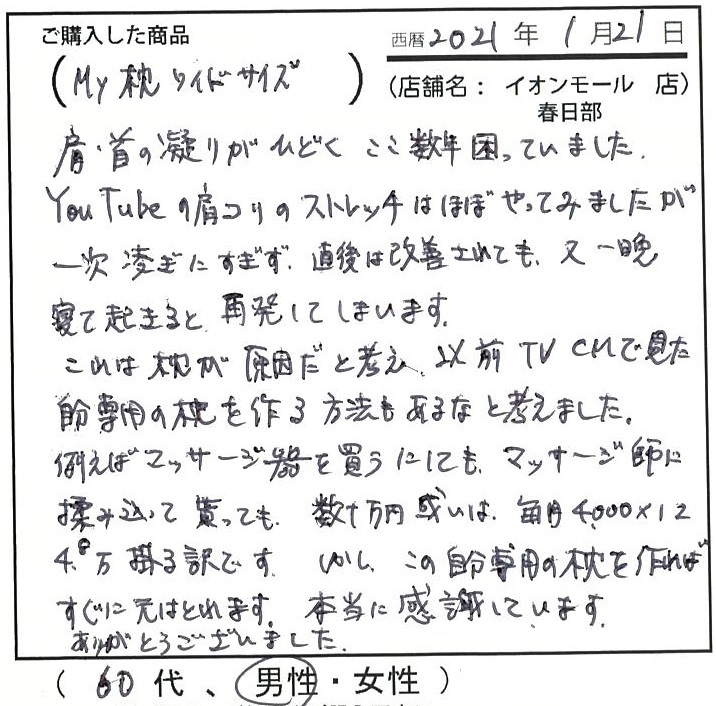 ご購入した商品
西暦2021年1月21日
(My枕ワイドサイズ)
(店舗名： イオンモール 店)
春日部
肩・首の凝りがひどく ここ数年困っていました.
YouTubeの肩コリのストレッチはほぼやってみましたが
一次凌ぎにすぎず、直後は改善されても、又一晩
寝て起きると、再発してしまいます。
これは枕が原因だと考え、以前TV CMで見た
自分専用の枕を作る方法もあるなと考えました。
例えばマッサージ器を買うにしても、マッサージ師に
揉み込って貰っても、数十万円或いは、毎月4000×12
4.8万掛る訳です。 しかし、この自分専用の枕を作れば
すぐに元はとれます。 本当に感謝しています。
ありがとうございました.
(60代、男性・女性)